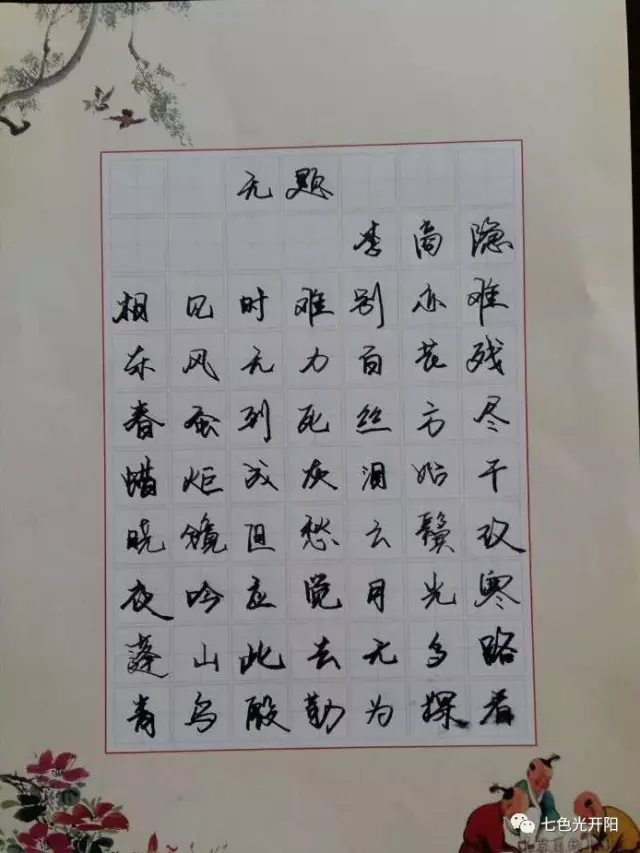 无题
李商隐
相见时难别亦难
东风无力百花残
春蚕到死丝方尽
蜡炬成灰泪始干
晓镜但愁云鬓改
夜吟应觉月光寒
蓬山此去无多路
青鸟殷勤为探看
七色光开阳